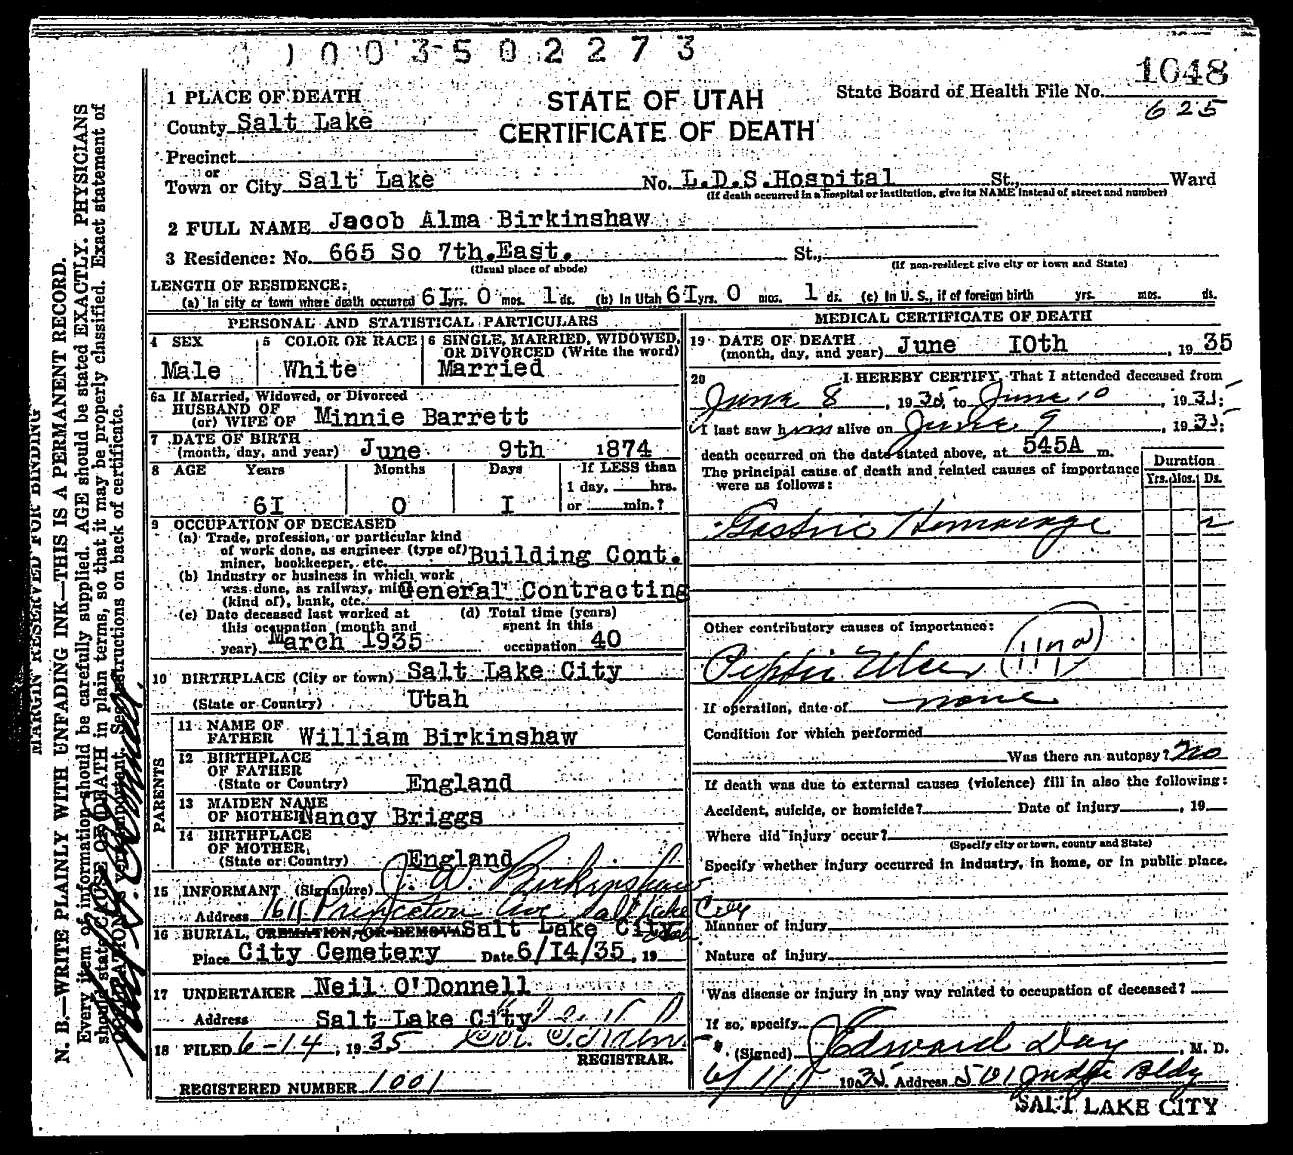 1003502273
1048
1 PLACE OF DEATH
STATE OF UTAH
State Board of Health File No.
625
County Salt Lake
CERTIFICATE OF DEATH
Precinct
or
Town or City Salt Lake No. L.D.S.Hospital St., Ward
(If death occurred in a hospital or institution, give its NAME instead of street and number)
2 FULL NAME Jacob Alma Birkinshaw
3 Residence: No. 665 So 7th.East. St.,
(Usual place of abode) (If non-resident give city or town and State)
LENGTH OF RESIDENCE:
(a) In city or town where death occurred 6I yrs. 0 mos. 1 ds. (b) In Utah 6I yrs. 0 mos. 1 ds. (c) In U. S., if of foreign birth yrs. mos. ds.
PERSONAL AND STATISTICAL PARTICULARS
4 SEX
Male
5 COLOR OR RACE
White
6 SINGLE, MARRIED, WIDOWED,
OR DIVORCED (Write the word)
Married
6a If Married, Widowed, or Divorced
HUSBAND OF
(or) WIFE OF Minnie Barrett
7 DATE OF BIRTH
(month, day, and year) June 9th 1874
8 AGE Years Months Days If LESS than
1 day, hrs.
6I 0 I or min.?
9 OCCUPATION OF DECEASED
(a) Trade, profession, or particular kind
of work done, as engineer (type of)
miner, bookkeeper, etc. Building Cont.
(b) Industry or business in which work
was done, as railway, mine
(kind of), bank, etc. General Contracting
(c) Date deceased last worked at
this occupation (month and
year) March I935
(d) Total time (years)
spent in this
occupation 40
10 BIRTHPLACE (City or town) Salt Lake City
(State or Country) Utah
PARENTS
11 NAME OF
FATHER William Birkinshaw
12 BIRTHPLACE
OF FATHER
(State or Country) England
13 MAIDEN NAME
OF MOTHER Nancy Briggs
14 BIRTHPLACE
OF MOTHER
(State or Country) England
15 INFORMANT (Signature) J. A. Birkinshaw
Address 1611 Princeton Ave Salt Lake City
16 BURIAL, CREMATION, OR REMOVAL Salt Lake City
Utah
Place City Cemetery Date 6/I4/35. 19
17 UNDERTAKER Neil O'Donnell
Address Salt Lake City
18 FILED 6-14, 1935
REGISTRAR.
REGISTERED NUMBER 1001
MEDICAL CERTIFICATE OF DEATH
19 DATE OF DEATH
(month, day, and year) June I0th , 1935
20 I HEREBY CERTIFY, That I attended deceased from
June 8, 1935, to June 10, 1935;
I last saw him alive on June 9, 1935;
death occurred on the date stated above, at 545A m.
The principal cause of death and related causes of importance
were as follows:
Duration
Yrs. Mos. Ds.
Gastric Hemorage 2
Other contributory causes of importance:
Peptic Ulcer (117a)
If operation, date of none
Condition for which performed
Was there an autopsy? no
If death was due to external causes (violence) fill in also the following:
Accident, suicide, or homicide? Date of injury , 19
Where did injury occur?
(Specify city or town, county and State)
Specify whether injury occurred in industry, in home, or in public place.
Manner of injury
Nature of injury
Was disease or injury in any way related to occupation of deceased?
If so, specify
(Signed) J Edward Day, M. D.
6/11 1935 Address 501 Judge Bldg
SALT LAKE CITY
MARGIN RESERVED FOR BINDING
N. B.—WRITE PLAINLY WITH UNFADING INK—THIS IS A PERMANENT RECORD.
Every item of information should be carefully supplied. AGE should be stated EXACTLY. PHYSICIANS
should state CAUSE OF DEATH in plain terms, so that it may be properly classified. Exact statement of
OCCUPATION is very important. See instructions on back of certificate.